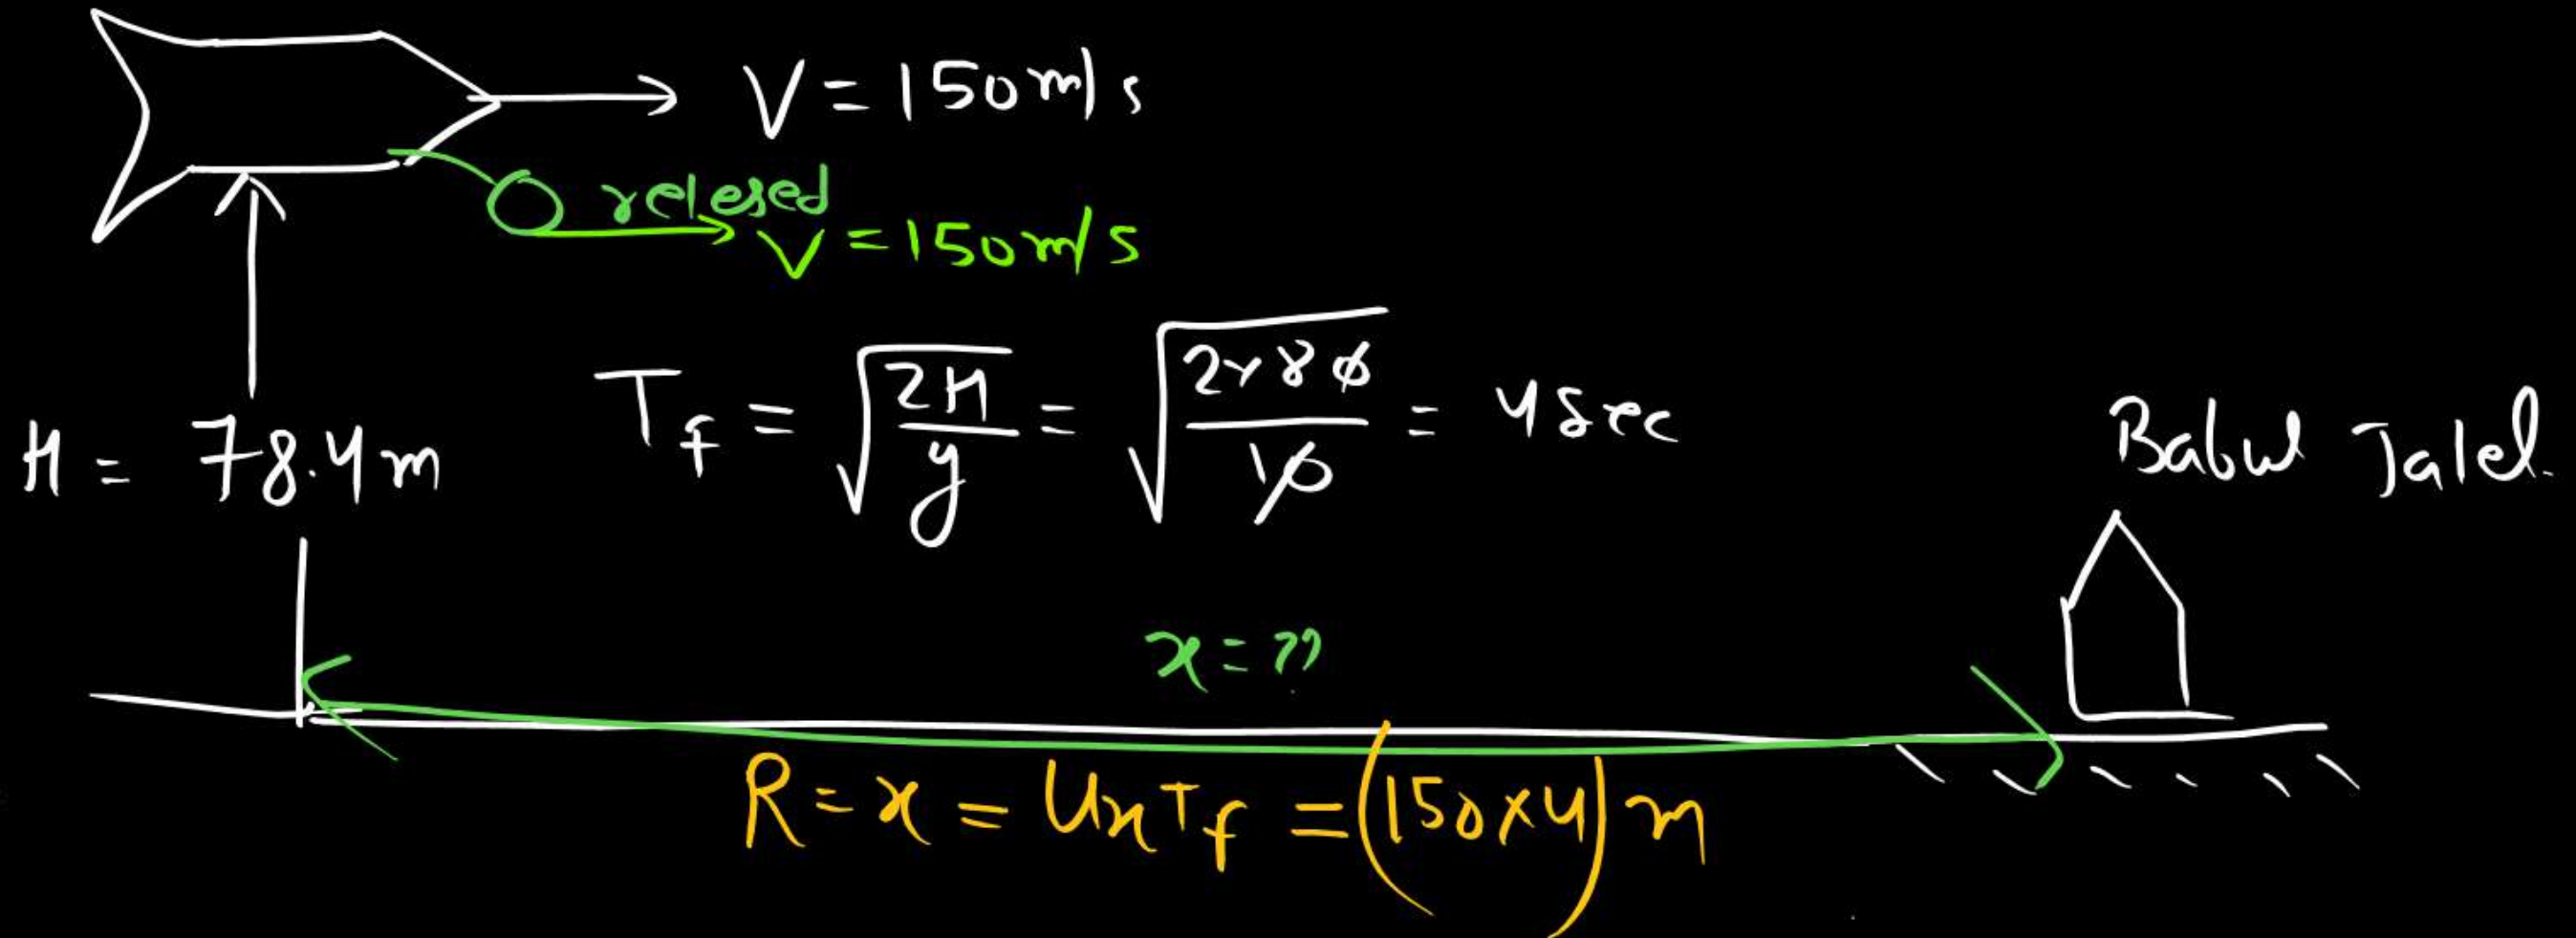 V = 150 m/s
relesed
V = 150 m/s
H = 78.4m
T_f = √(2H/g) = √(2×80/10) = 4 sec
Babul Jalel.
x = ??
R = x = Ux T_f = (150×4) m